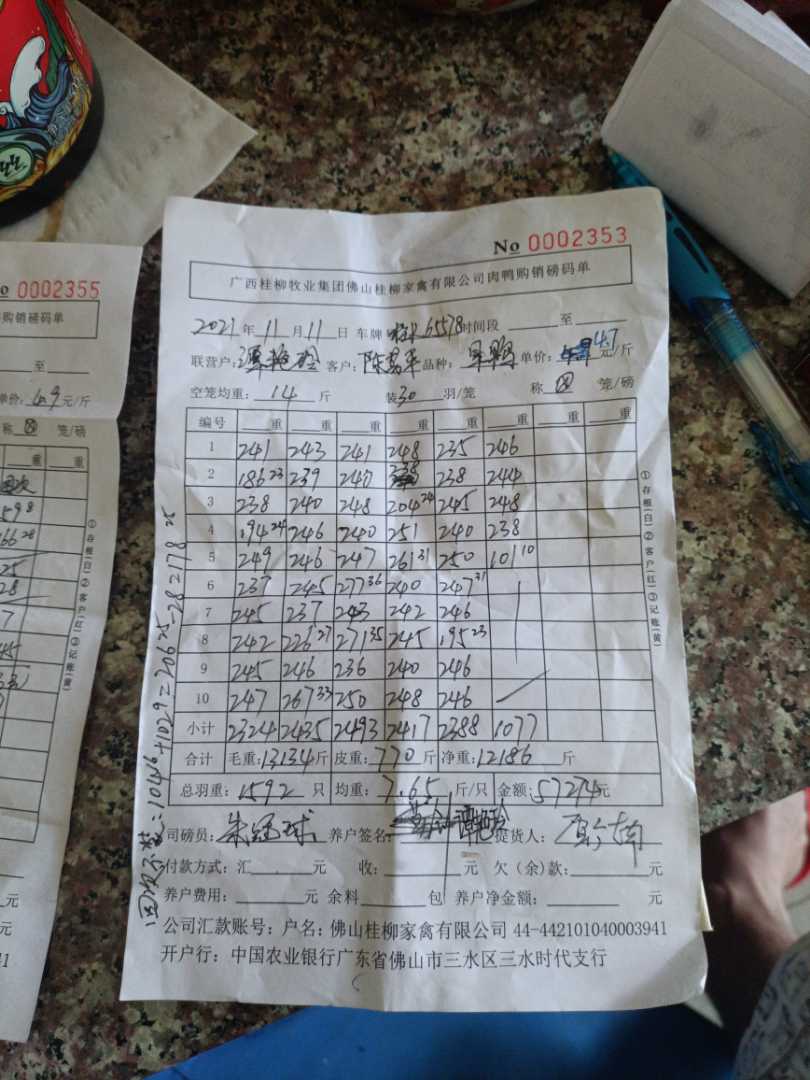 No 0002353
广西桂柳牧业集团佛山桂柳家禽有限公司肉鸭购销磅码单
2021年11月11日 车牌 65578 时间段 至
联营户: 客户: 品种: 单价: 4.7 元/斤
空笼均重: 14 斤 装30 羽/笼 称 ④ 笼/磅
编号 重 重 重 重 重 重 重 重
1 241 243 241 248 235 246
2 186 23 239 240 238 238 244
3 238 240 248 204 24 245 248
4 194 24 246 240 251 240 238
5 249 246 247 261 31 250 101 10
6 237 245 277 36 240 247 31
7 245 237 243 242 246
8 242 226 27 271 35 245 195 23
9 245 246 236 240 246
10 247 267 33 250 248 246
小计 2324 2435 2493 2417 2388 1077
合计 毛重:13134斤 皮重:770斤 净重:12186斤
总羽重:1592只 均重:7.65斤/只 金额:57274元
司磅员:朱 球 养户签名: 提货人:
付款方式:汇 元 收: 元 欠(余)款: 元
养户费用: 元 余料 包 养户净金额: 元
公司汇款账号:户名:佛山桂柳家禽有限公司 44-442101040003941
开户行:中国农业银行广东省佛山市三水区三水时代支行
①存根(白)②客户(红)③记账(黄)
1029=206 25-28=178 25
No 0002355
购销磅码单
至
单价: 4.9元/斤
称 ④ 笼/磅
重 重
①存根(白)②客户(红)③记账(黄)
元
元